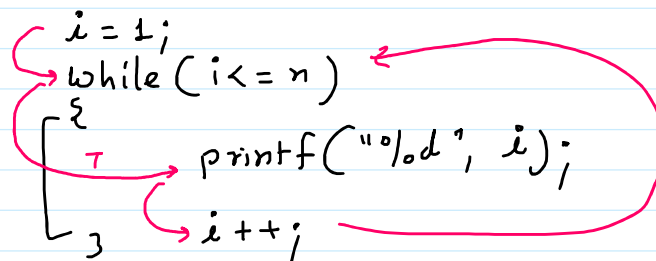 i = 1;
while ( i <= n )
{
T printf("%d", i);
i++;
}